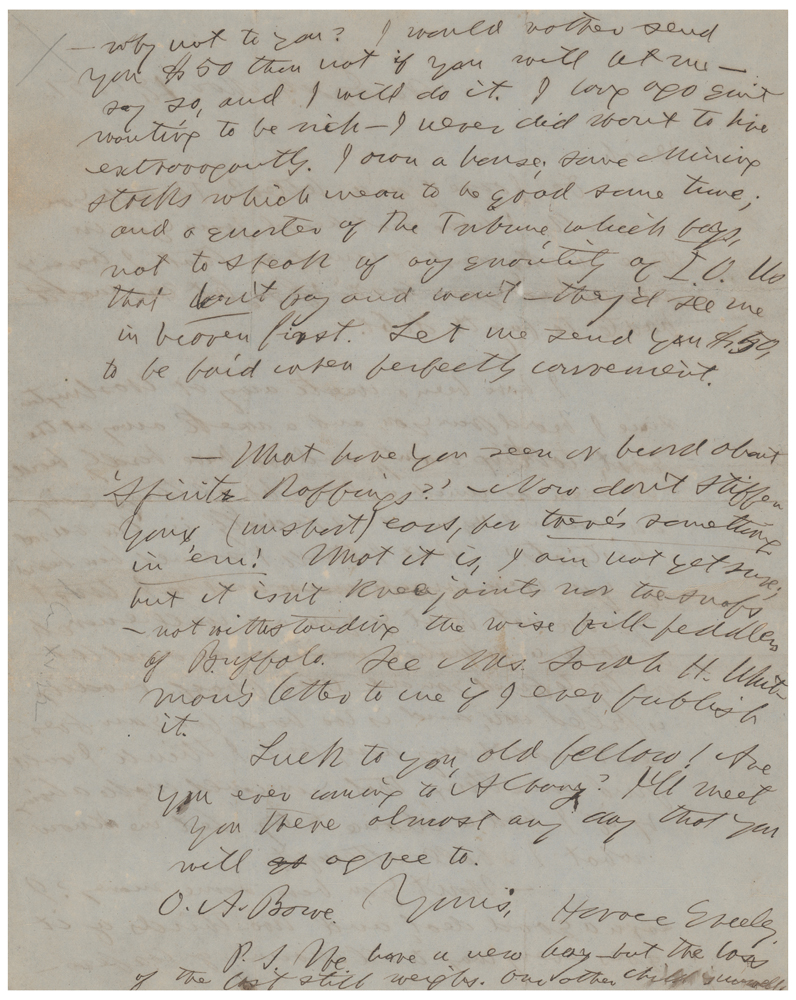 — why not to you? I would rather send
you $50 than not if you will let me —
say so, and I will do it. I long ago quit
wanting to be rich — I never did want to live
extravagantly. I own a house, some Mining
stocks which mean to be good some time;
and a quarter of The Tribune which pays,
not to speak of any quantity of I.O. Us
that don't pay and won't — they'd see me
in heaven first. Let me send you $50,
to be paid when perfectly convenient.
— What have you seen or heard about
'Spirit Rappings?' — Now don't stiffen
your (unshort) ears, for there's something
in 'em! What it is, I am not yet sure;
but it isn't Knee joints nor toe snaps
— notwithstanding the wise pill-peddlers
of Buffalo. See Mrs. Sarah H. Whit-
man's letter to me if I ever publish
it.
Luck to you, old fellow! Are
you ever coming to Albany? I'll meet
you there almost any day that you
will agree to.
O. A. Bowe. Yours, Horace Greeley.
P. S. We have a new boy — but the loss
of the last still weighs. One other child